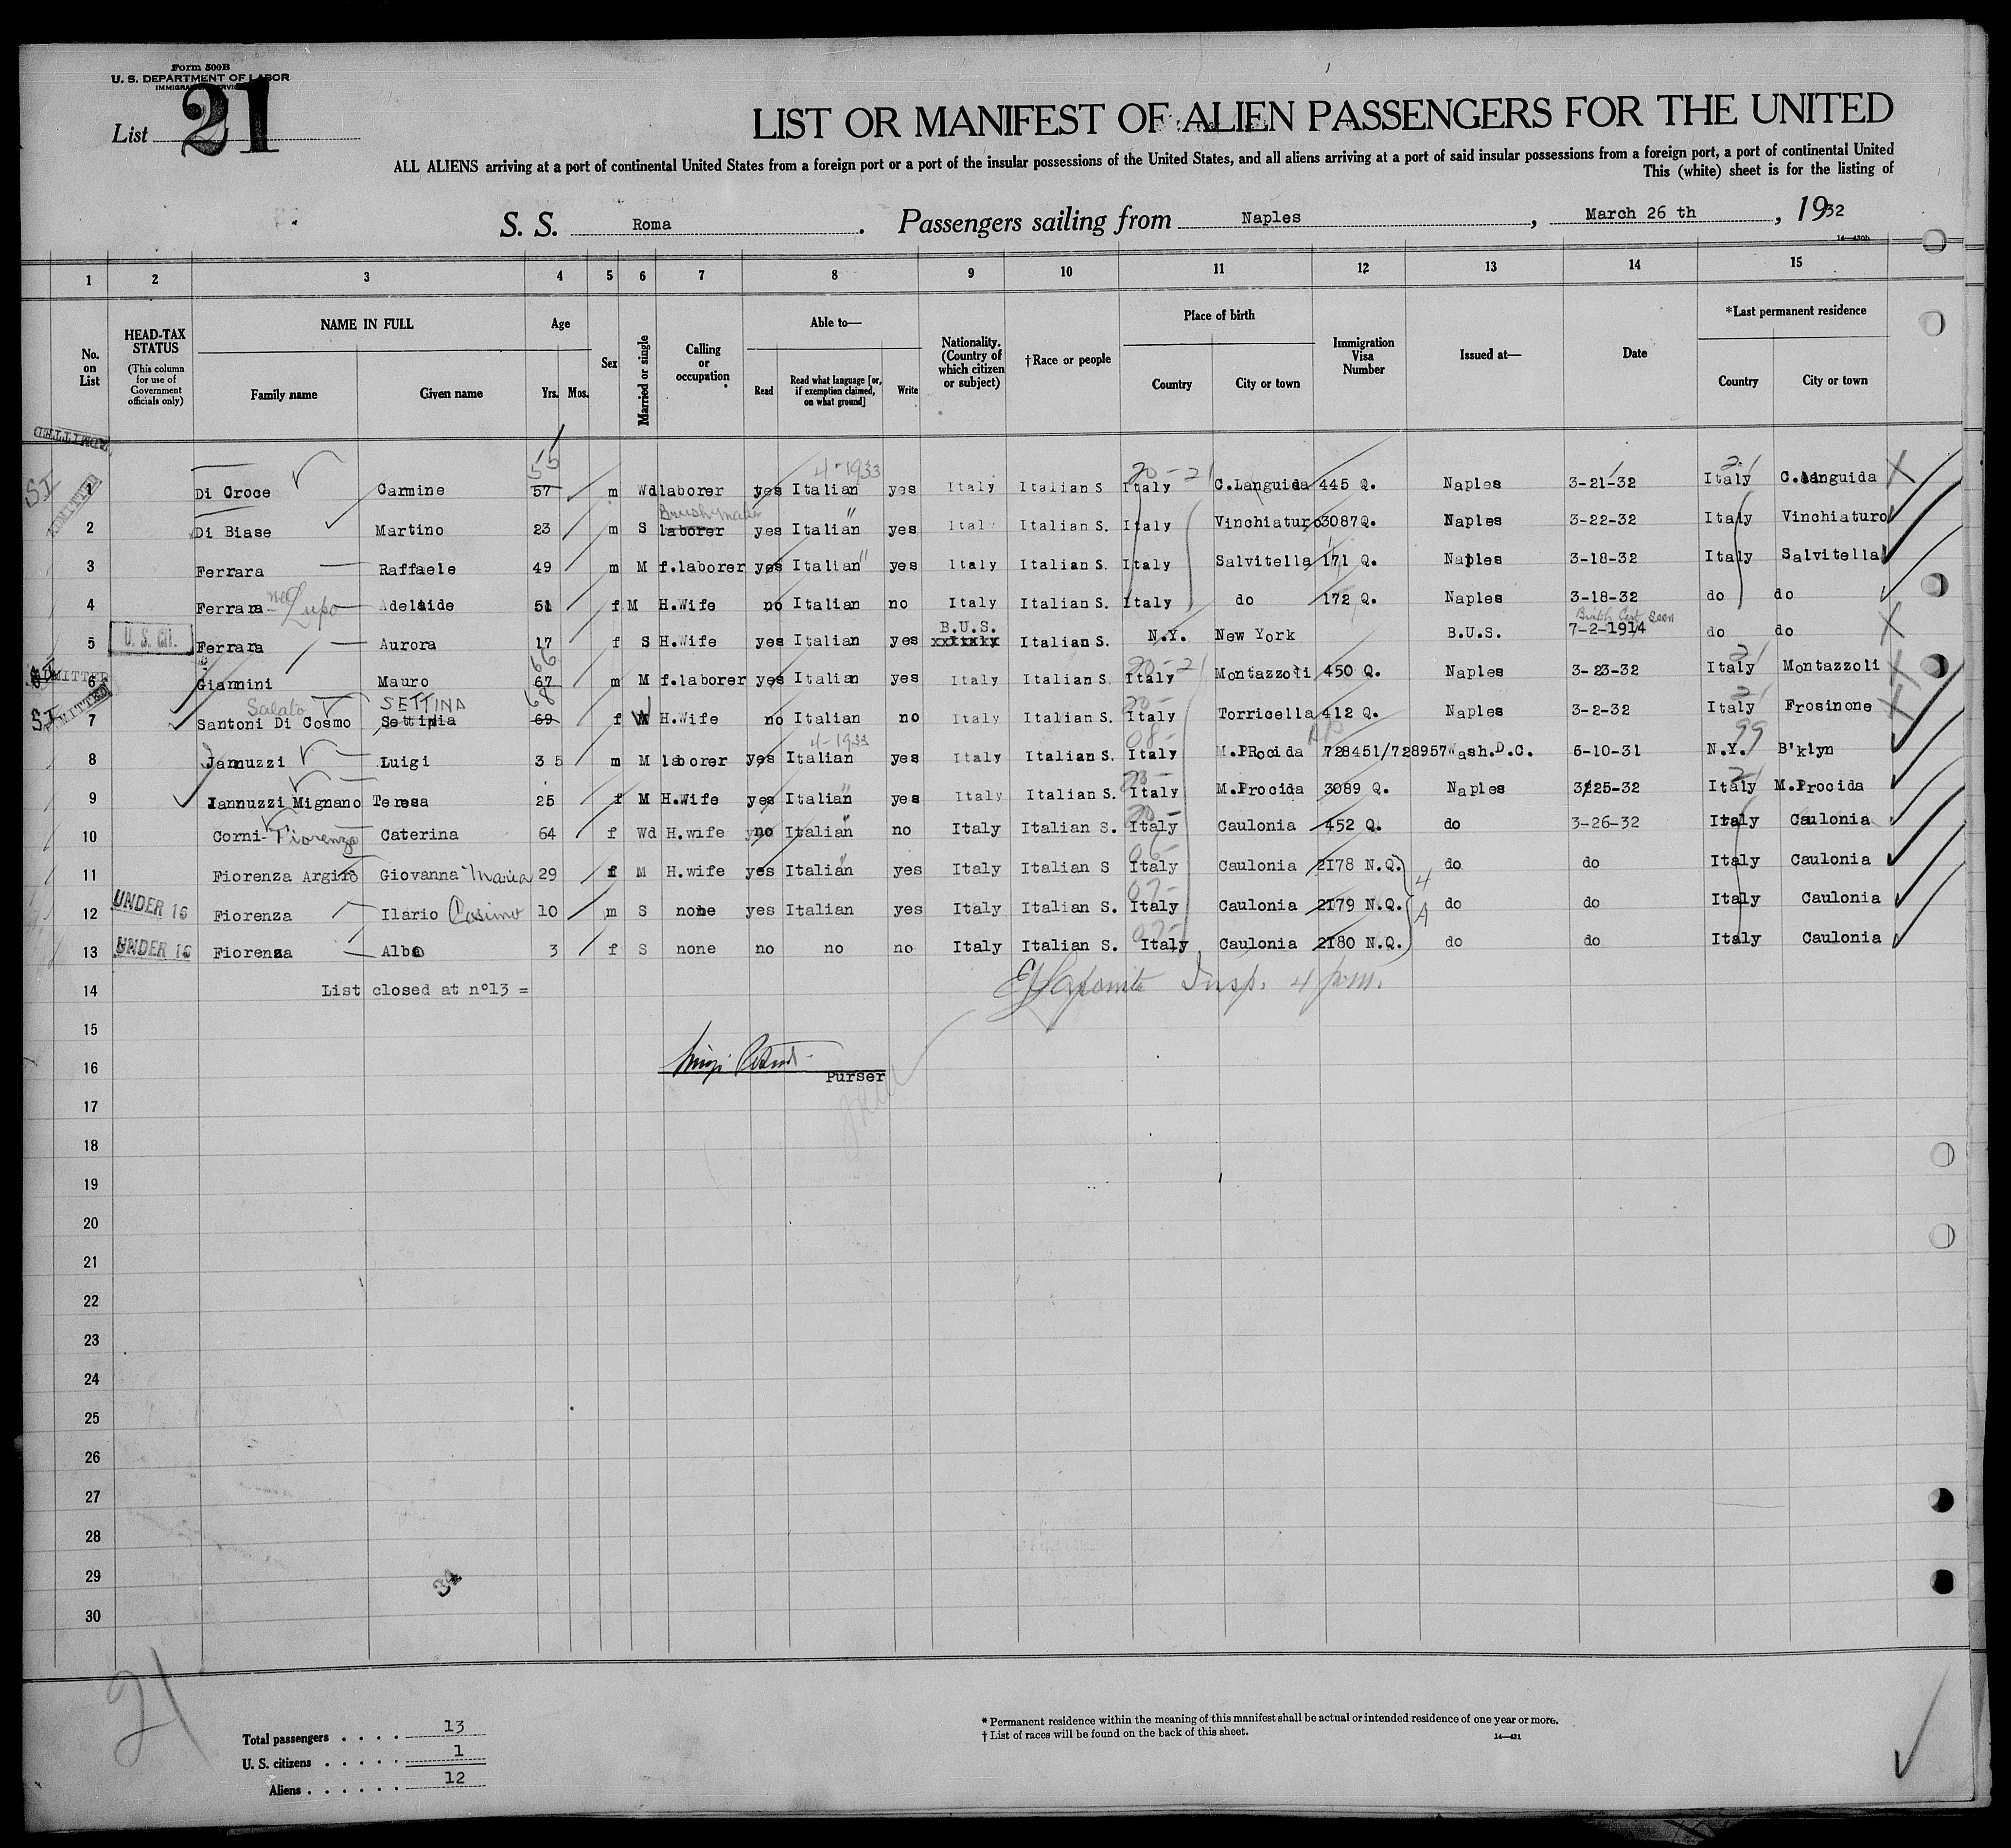 Form 500B
U. S. DEPARTMENT OF LABOR
IMMIGRATION SERVICE
List 21
LIST OR MANIFEST OF ALIEN PASSENGERS FOR THE UNITED
ALL ALIENS arriving at a port of continental United States from a foreign port or a port of the insular possessions of the United States, and all aliens arriving at a port of said insular possessions from a foreign port, a port of continental United
This (white) sheet is for the listing of
S. S. Roma. Passengers sailing from Naples, March 26 th, 1932
14—430b
1 2 3 4 5 6 7 8 9 10 11 12 13 14 15
No. on List
HEAD-TAX STATUS
(This column for use of Government officials only)
NAME IN FULL
Family name
Given name
Age
Yrs. Mos.
Sex
Married or single
Calling or occupation
Able to—
Read
Read what language [or, if exemption claimed, on what ground]
Write
Nationality. (Country of which citizen or subject)
†Race or people
Place of birth
Country
City or town
Immigration Visa Number
Issued at—
Date
*Last permanent residence
Country
City or town
ADMITTED
55 4-1933 20-21 21
SI ADMITTED 1 Di Croce Carmine 57 m Wd laborer yes Italian yes Italy Italian S Italy C.Languida 445 Q. Naples 3-21-32 Italy C.Languida
Brushmaker
2 Di Biase Martino 23 m S laborer yes Italian " yes Italy Italian S. Italy Vinchiaturo 3087Q. Naples 3-22-32 Italy Vinchiaturo
3 Ferrara Raffaele 49 m M f.laborer yes Italian " yes Italy Italian S. Italy Salvitella 171 Q. Naples 3-18-32 Italy Salvitella
4 Ferrara nee Lupo Adelaide 51 f M H.Wife no Italian no Italy Italian S. Italy do 172 Q. Naples 3-18-32 do do
B.U.S. Birth Cert seen
5 U. S. Cit. Ferrara Aurora 17 f S H.Wife yes Italian yes xxItaly Italian S. N.Y. New York B.U.S. 7-2-1914 do do
66 20-21 21
SI ADMITTED 6 Giannini Mauro 67 m M f.laborer yes Italian yes Italy Italian S. Italy Montazzoli 450 Q. Naples 3-23-32 Italy Montazzoli
Salato SETTINA 68 20- 21
SI ADMITTED 7 Santoni Di Cosmo Settinia 69 f W H.Wife no Italian no Italy Italian S. Italy Torricella 412 Q. Naples 3-2-32 Italy Frosinone
4-1933 08- RP 99
8 Jannuzzi Luigi 35 m M laborer yes Italian yes Italy Italian S. Italy M.PRocida 728451/728957 Wash.D.C. 6-10-31 N.Y. B'klyn
9 Iannuzzi Mignano Teresa 25 f M H.Wife yes Italian " yes Italy Italian S. Italy M.Procida 3089 Q. Naples 3/25-32 Italy M.Procida
10 Corni-Fiorenza Caterina 64 f Wd H.wife no Italian " no Italy Italian S. Italy Caulonia 452 Q. do 3-26-32 Italy Caulonia
11 Fiorenza Argirò Giovanna Maria 29 f M H.wife yes Italian " yes Italy Italian S Italy Caulonia 2178 N.Q. do do Italy Caulonia
4
A
12 UNDER 16 Fiorenza Ilario Cosimo 10 m S none yes Italian yes Italy Italian S. Italy Caulonia 2179 N.Q. do do Italy Caulonia
13 UNDER 16 Fiorenza Alba 3 f S none no no no Italy Italian S. Italy Caulonia 2180 N.Q. do do Italy Caulonia
14 List closed at n°13 =
Insp. 4 p.m.
15
16
Purser
17
18
19
20
21
22
23
24
25
26
27
28
29
34
30
21
Total passengers . . . . 13
U. S. citizens . . . . . 1
Aliens . . . . . . 12
* Permanent residence within the meaning of this manifest shall be actual or intended residence of one year or more.
† List of races will be found on the back of this sheet.
14—431